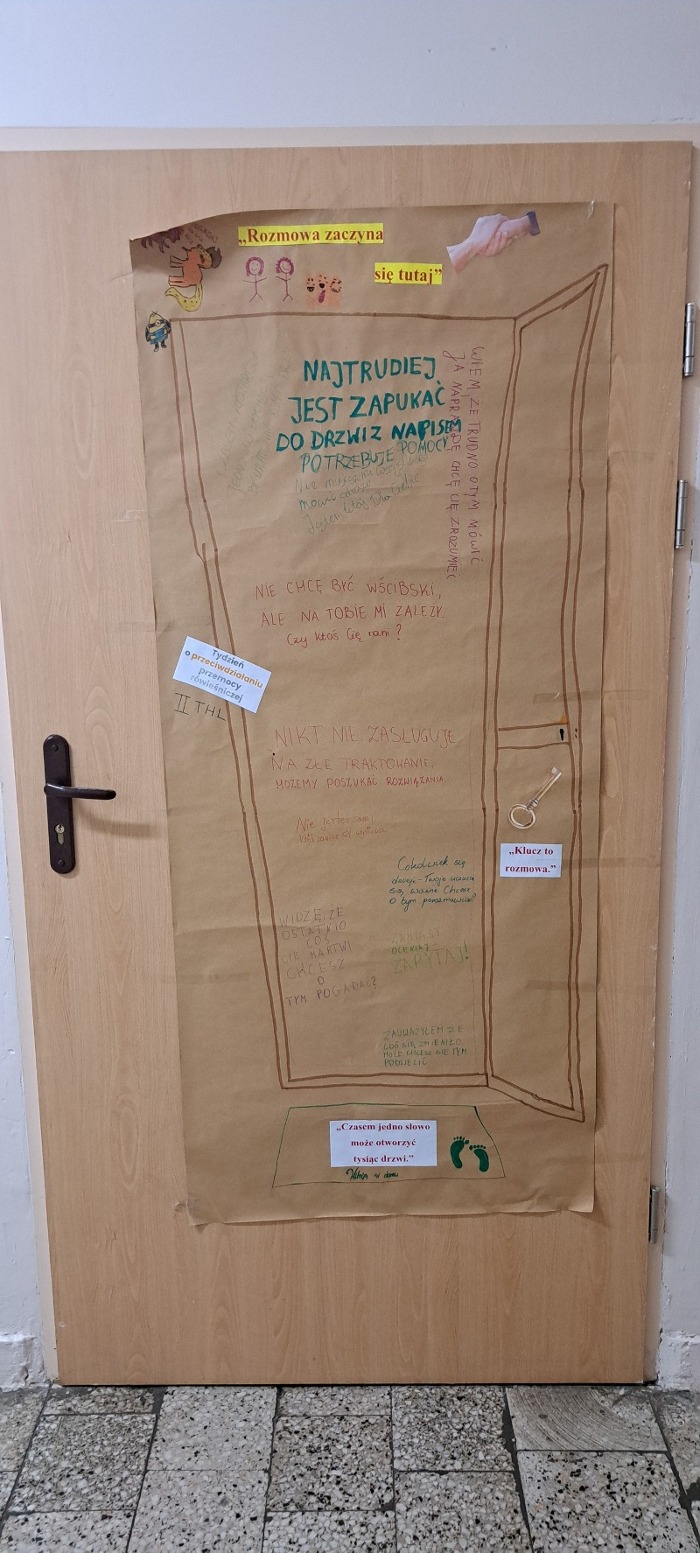 „Rozmowa zaczyna
się tutaj”
NAJTRUDIEJ
JEST ZAPUKAĆ
DO DRZWI Z NAPISEM
POTRZEBUJĘ POMOCY
WIEM, ŻE TRUDNO O TYM MÓWIĆ
JA NAPRAWDĘ CHCĘ CIĘ ZROZUMIEĆ
NIE CHCĘ BYĆ WŚCIBSKI,
ALE NA TOBIE MI ZALEŻY.
Czy ktoś Cię rani?
Tydzień
o przeciwdziałaniu
przemocy
rówieśniczej
II THL
NIKT NIE ZASŁUGUJE
NA ZŁE TRAKTOWANIE.
MOŻEMY POSZUKAĆ ROZWIĄZANIA.
Nie jesteś sam,
„Klucz to
rozmowa.”
Cokolwiek się
dzieje - Twoje uczucia
są ważne Chcesz
o tym porozmawiać?
WIDZĘ, ŻE
OSTATNIO
COŚ
CIĘ MARTWI
CHCESZ
O
TYM POGADAĆ?
OCENIAĆ
ZAPYTAJ!
ZAUWAŻYŁEM ŻE
COŚ SIĘ ZMIENIŁO
MOŻE CHCESZ SIĘ TYM
PODZIELIĆ
„Czasem jedno słowo
może otworzyć
tysiąc drzwi.”